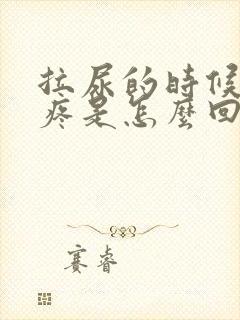 拉尿的時候
疼是怎麼回
賽睿